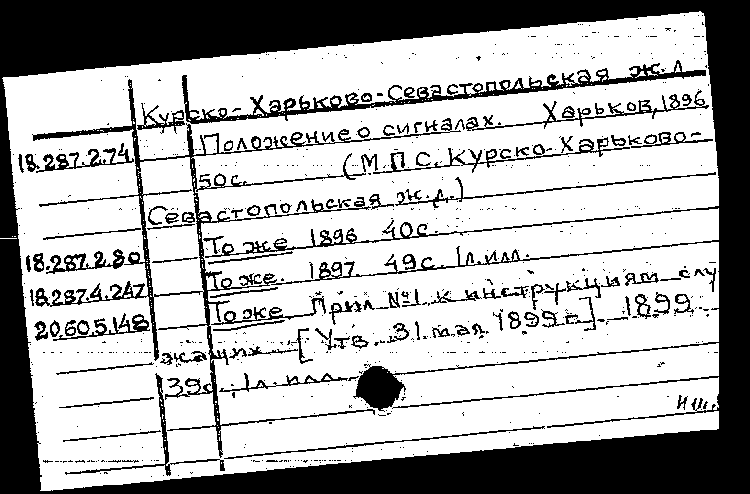 Курско-Харьково-Севастопольская ж.д
18.287.2.74 Положение о сигналах. Харьков, 1896
50с. (М.П.С. Курско-Харьково-
Севастопольская ж.д.)
18.287.2.80 То же 1896 40с.
18.287.4.247 То же. 1897. 49с. 1л.илл.
20.60.5.148 То же Прил №1 к инструкциям слу
жащих [Утв. 31 мая 1899г.]. 1899.
39с., 1л. илл.